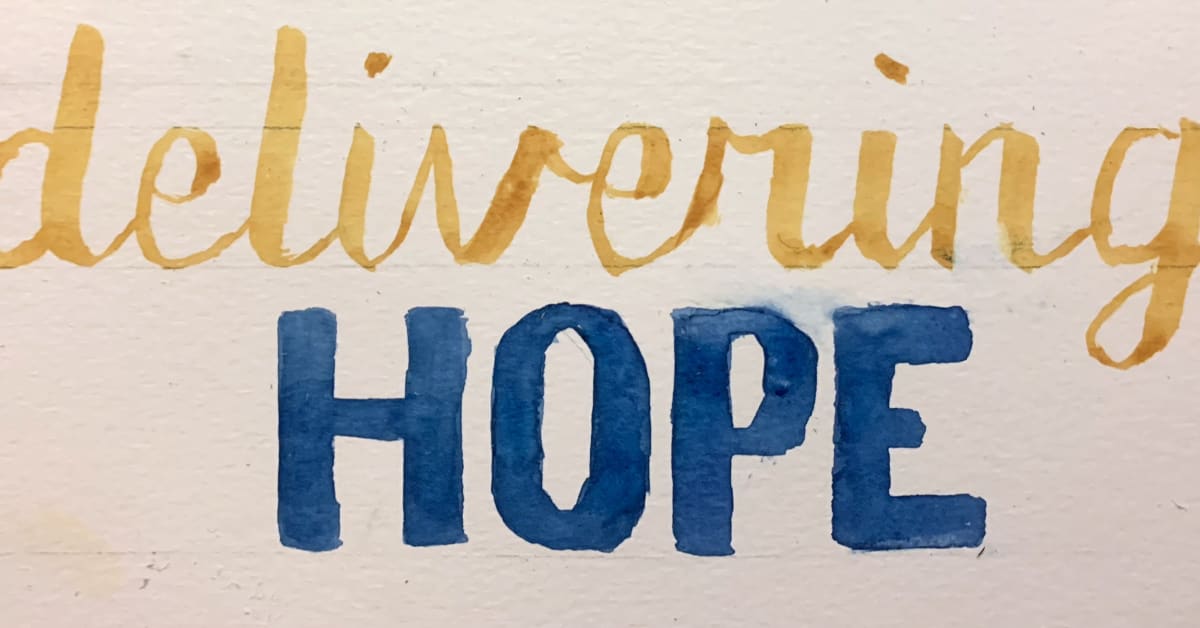 delivering
HOPE